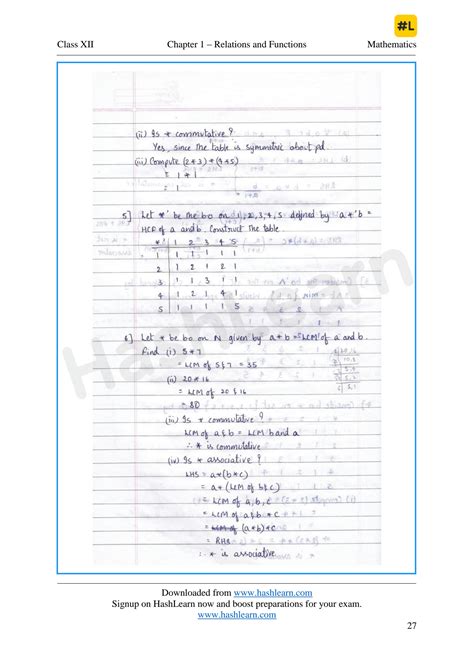 #L
Class XII Chapter 1 – Relations and Functions Mathematics
(ii) Is * commutative?
Yes, since the table is symmetric about pd.
(iii) Compute (2*3) * (4*5)
= 1 * 1
= 1
5] Let *' be the bo on 1,2,3,4,5 defined by a *' b =
HCF of a and b. Construct the table.
*' 1 2 3 4 5
1 1 1 1 1 1
2 1 2 1 2 1
3 1 1 3 1 1
4 1 2 1 4 1
5 1 1 1 1 5
6] Let * be bo on N given by a * b = LCM of a and b.
Find (i) 5 * 7
= LCM of 5 & 7 = 35
(ii) 20 * 16
= LCM of 20 & 16
= 80
(iii) Is * commutative?
LCM of a & b = LCM b and a
∴ * is commutative
(iv) Is * associative?
LHS = a * (b * c)
= a * (LCM of b & c)
= LCM of a, b, c
= LCM of a & b * c
= (a * b) * c
= RHS
∴ * is associative
HashLearn
Downloaded from www.hashlearn.com
Signup on HashLearn now and boost preparations for your exam.
www.hashlearn.com
27